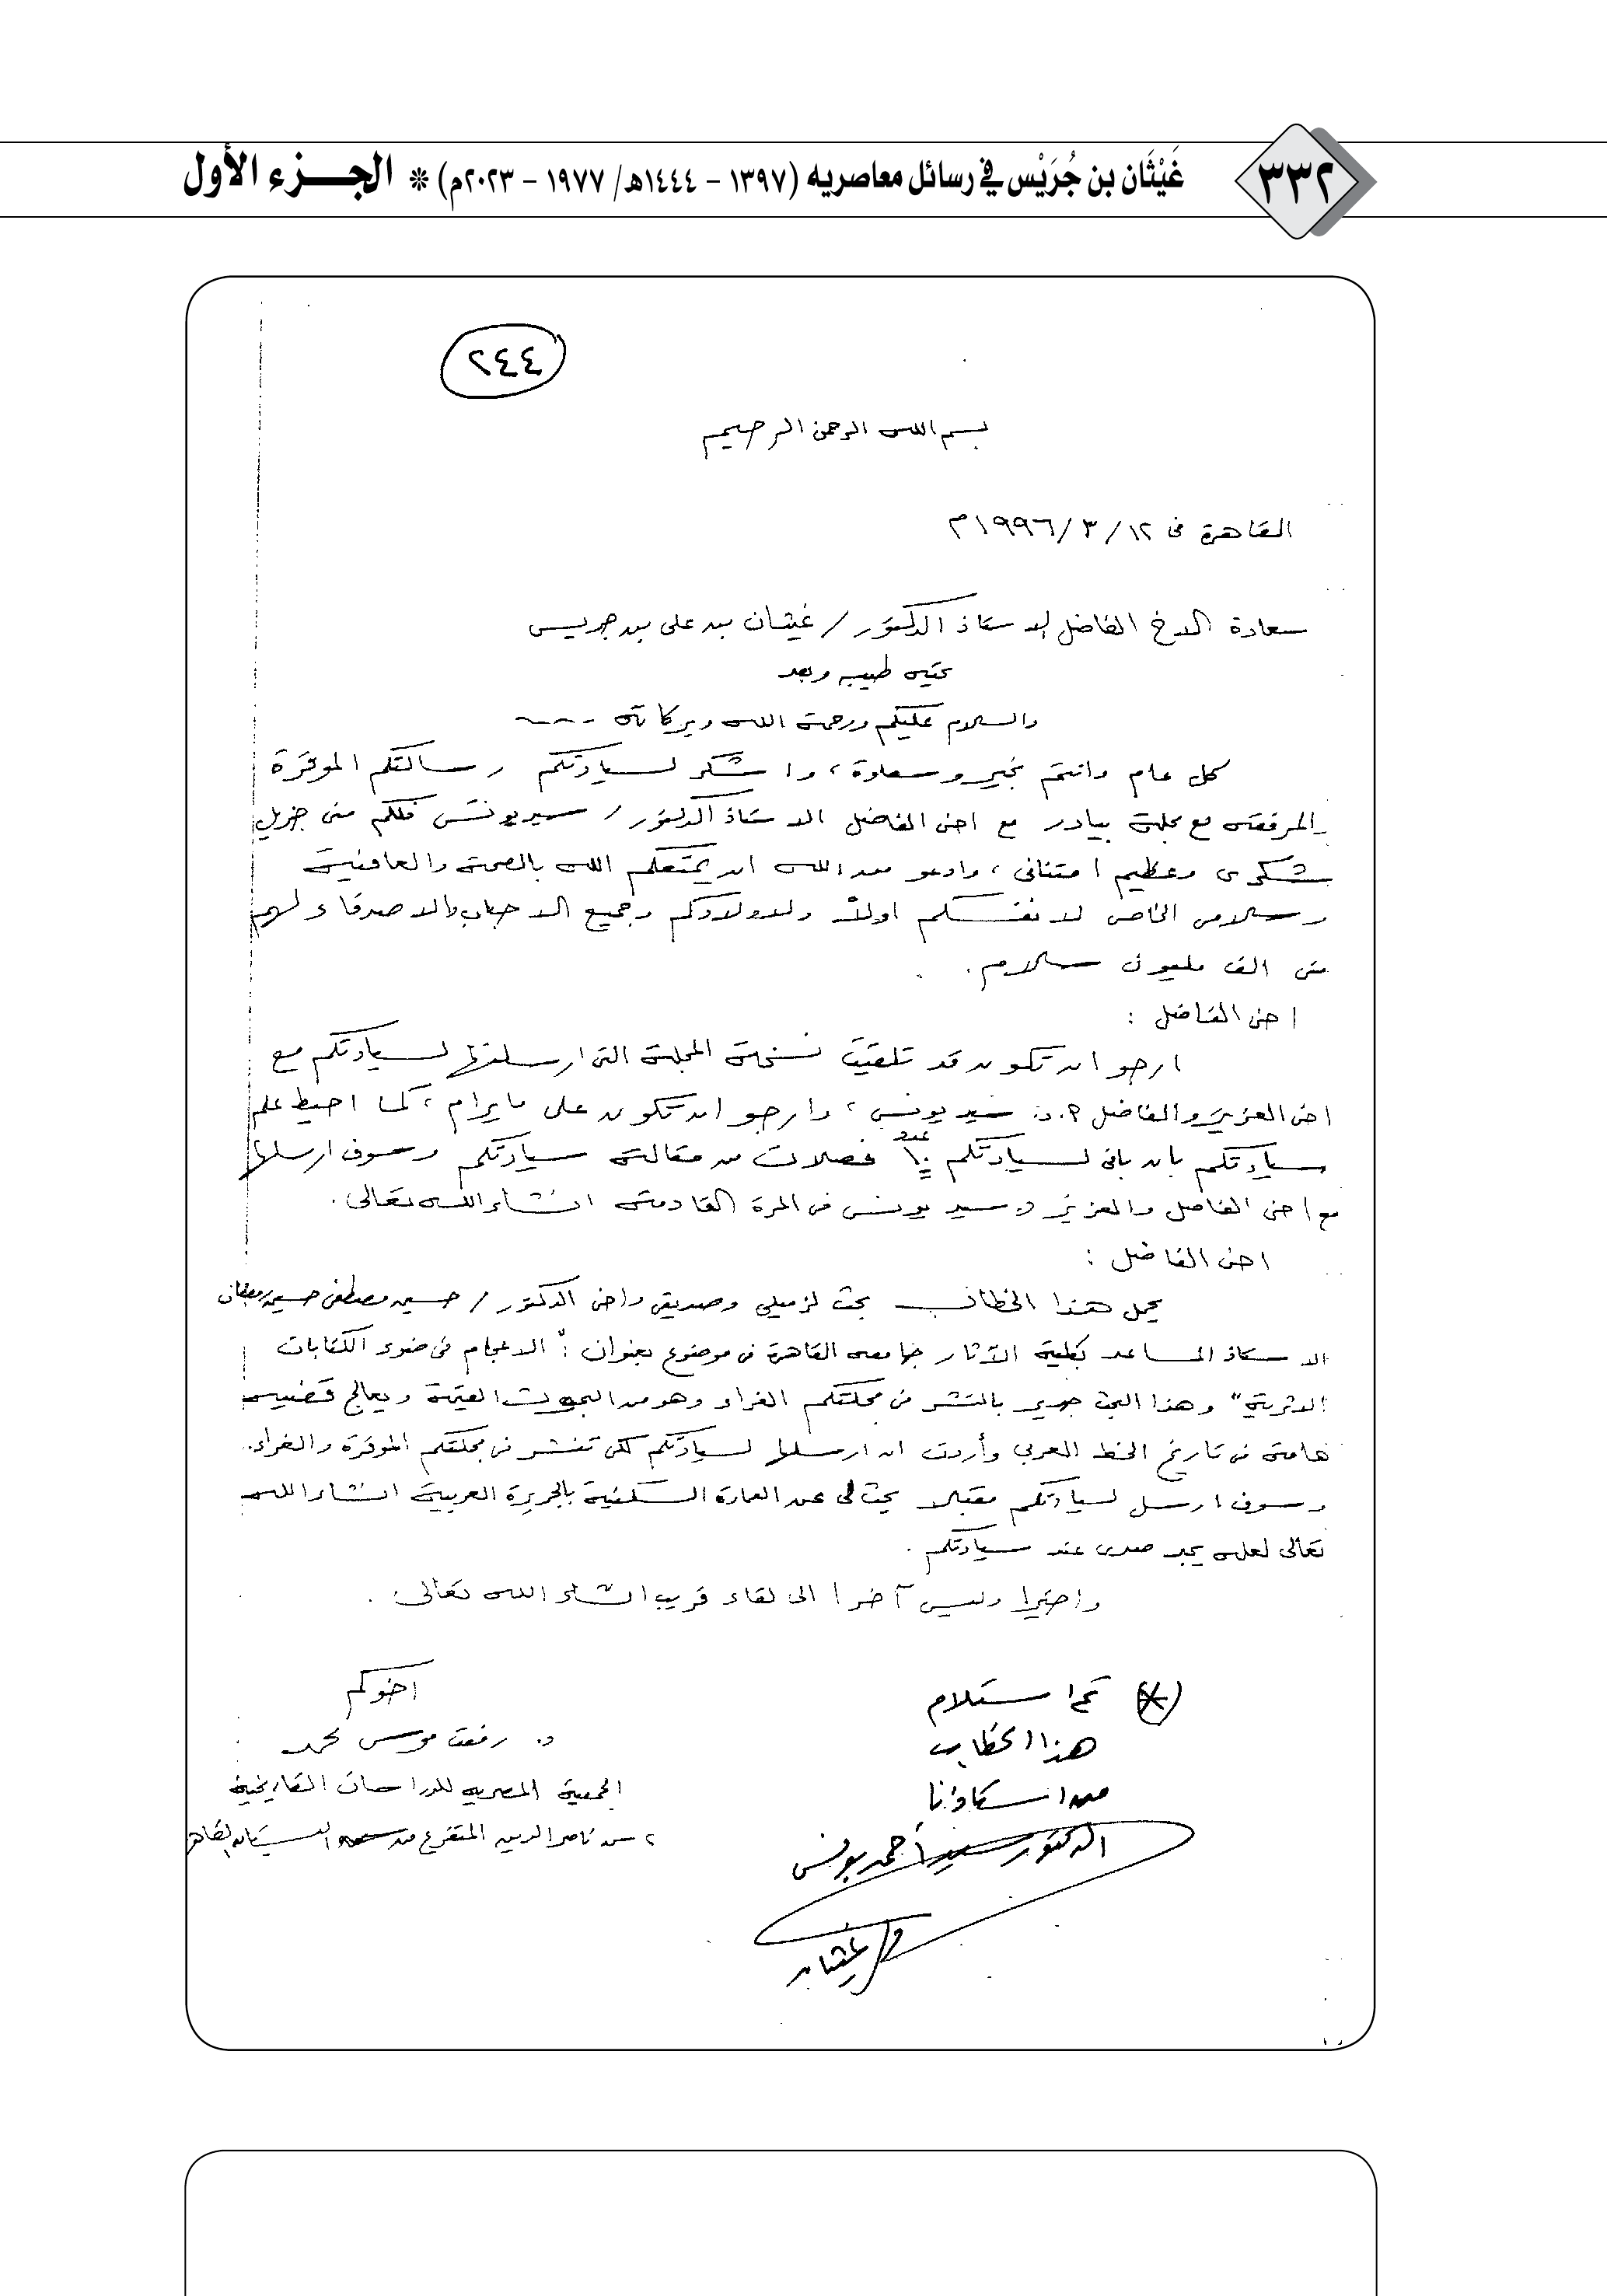 ٣٣٢
غَيْثَان بن جُرَيْس في رسائل معاصريه (١٣٩٧ - ١٤٤٤هـ/ ١٩٧٧ - ٢٠٢٣م) * الجزء الأول
٢٤٤
بسم الله الرحمن الرحيم
القاهرة فى ١٢/ ٣/ ١٩٩٦م
سعادة الاخ الفاضل الاستاذ الدكتور / غيثان بن على بن جريس
تحيه طيبه وبعد
والسلام عليكم ورحمة الله وبركاته ---
كل عام وانتم بخير وسعادة، واشكر لسيادتكم رسالتكم الموقرة
المرفقة مع مجلة بيادر مع اخى الفاضل الاستاذ الدكتور / سيد يونس فلكم منى جزيل
شكرى وعظيم امتنانى، وادعو الله ان يمتعكم الله بالصحة والعافية
وسلامى الخاص لانفسكم اولاً ولاولادكم وجميع الاحباب والاصدقاء ولهم
منى الف مليون سلام.
اخى الفاضل :
ارجو ان تكون قد تلقيت نسخة المجلة التى ارسلتها لسيادتكم مع
اخى العزيز والفاضل أ.د. سيد يونس، وارجو ان تكون على ما يرام، كما احيط علم
سيادتكم بان باقى لسيادتكم ١٠ عدد فصلات من مقالة سيادتكم وسوف ارسلها
مع اخى الفاضل والعزيز د سيد يونس فى المرة القادمة انشاء الله تعالى.
اخى الفاضل :
يحمل هذا الخطاب بحث لزميلى وصديقى واخى الدكتور / حسين مصطفى حسين رمضان
الاستاذ المساعد بكلية الآثار جامعه القاهرة فى موضوع بعنوان : "الاعجام فى ضوء الكتابات
الاثرية" وهذا البحث جدير بالنشر فى مجلتكم الغراء وهو من البحوث القيمة ويعالج قضية
هامة فى تاريخ الخط العربى وأردت ان ارسلها لسيادتكم لكى تنشر فى مجلتكم الموقرة والغراء.
وسوف ارسل لسيادتكم مقبلا بحث لى عن العمارة السكنية بالجزيرة العربية انشاء الله
تعالى لعله يجد صدى عند سيادتكم.
واخيرا وليس آخرا الى لقاء قريب انشاء الله تعالى.
اخوكم
د. رفعت موسى محمد
الجمعية المصريه للدراسات التاريخية
٢ ش ناصر الدين المتفرع من البستان القاهرة
(*) تم استلام
هذا الخطاب
من استاذنا
الدكتور سيد أحمد يونس
غيثان